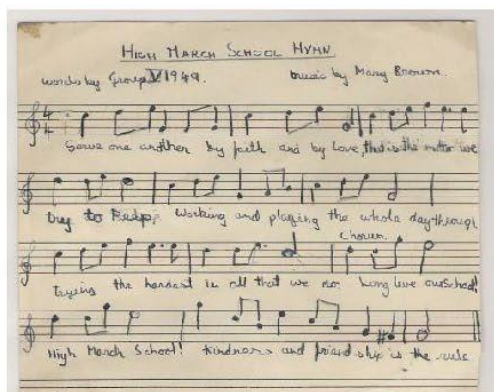 HIGH MARCH SCHOOL HYMN
words by Group V 1949. music by Mary Brown.
Serve one another by faith and by Love, that is the motto we
try to keep, Working and playing the whole day through
Chorus.
Trying the hardest in all that we do, Long live our School!
High March School! Kindness and friendship is the rule